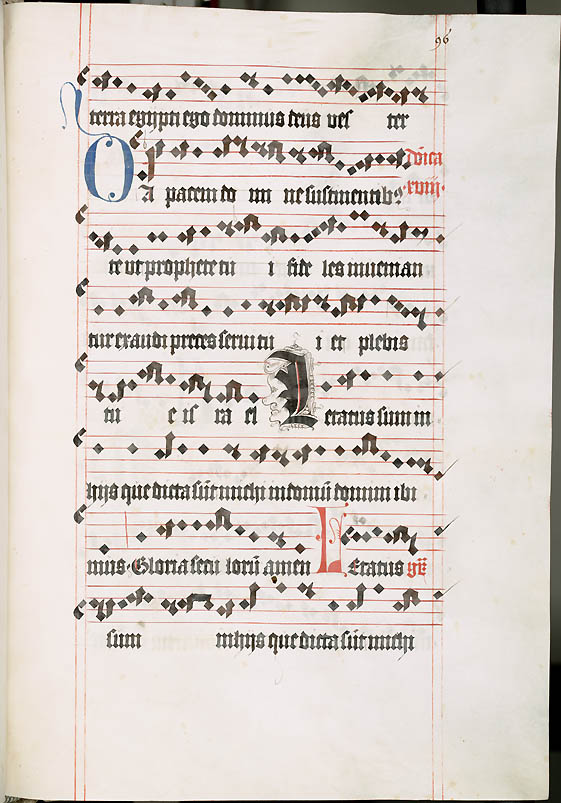 96
terra egypti ego dominus deus ves ter
Dñica
DA pacem do mi ne sustinentib9
xviij.
te vt prophete tu i fide les inueman
tur exaudi preces serui tu i et plebis
tu e is ra el Letatus sum in
hijs que dicta sũt michi in domũ domini ibi
mus. Gloria seculorũ amen Letatus gr̃
sum in hijs que dicta sũt michi